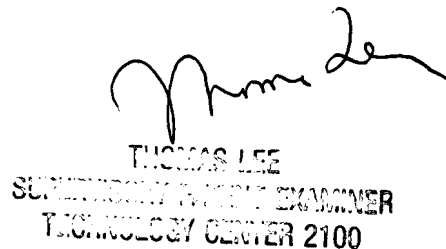 Thomas Lee
THOMAS LEE
SUPERVISORY PATENT EXAMINER
TECHNOLOGY CENTER 2100